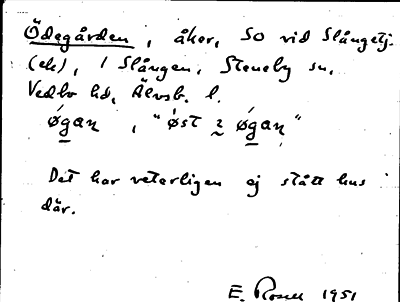 Ödegården, åker, SO vid Slångetj.
(ek), 1 Slången, Steneby sn,
Vedbo hd, Älvsb. l.
øgaɳ, "øst ɩ øgaɳ"
Det har veterligen ej stått hus
där.
E. 1951